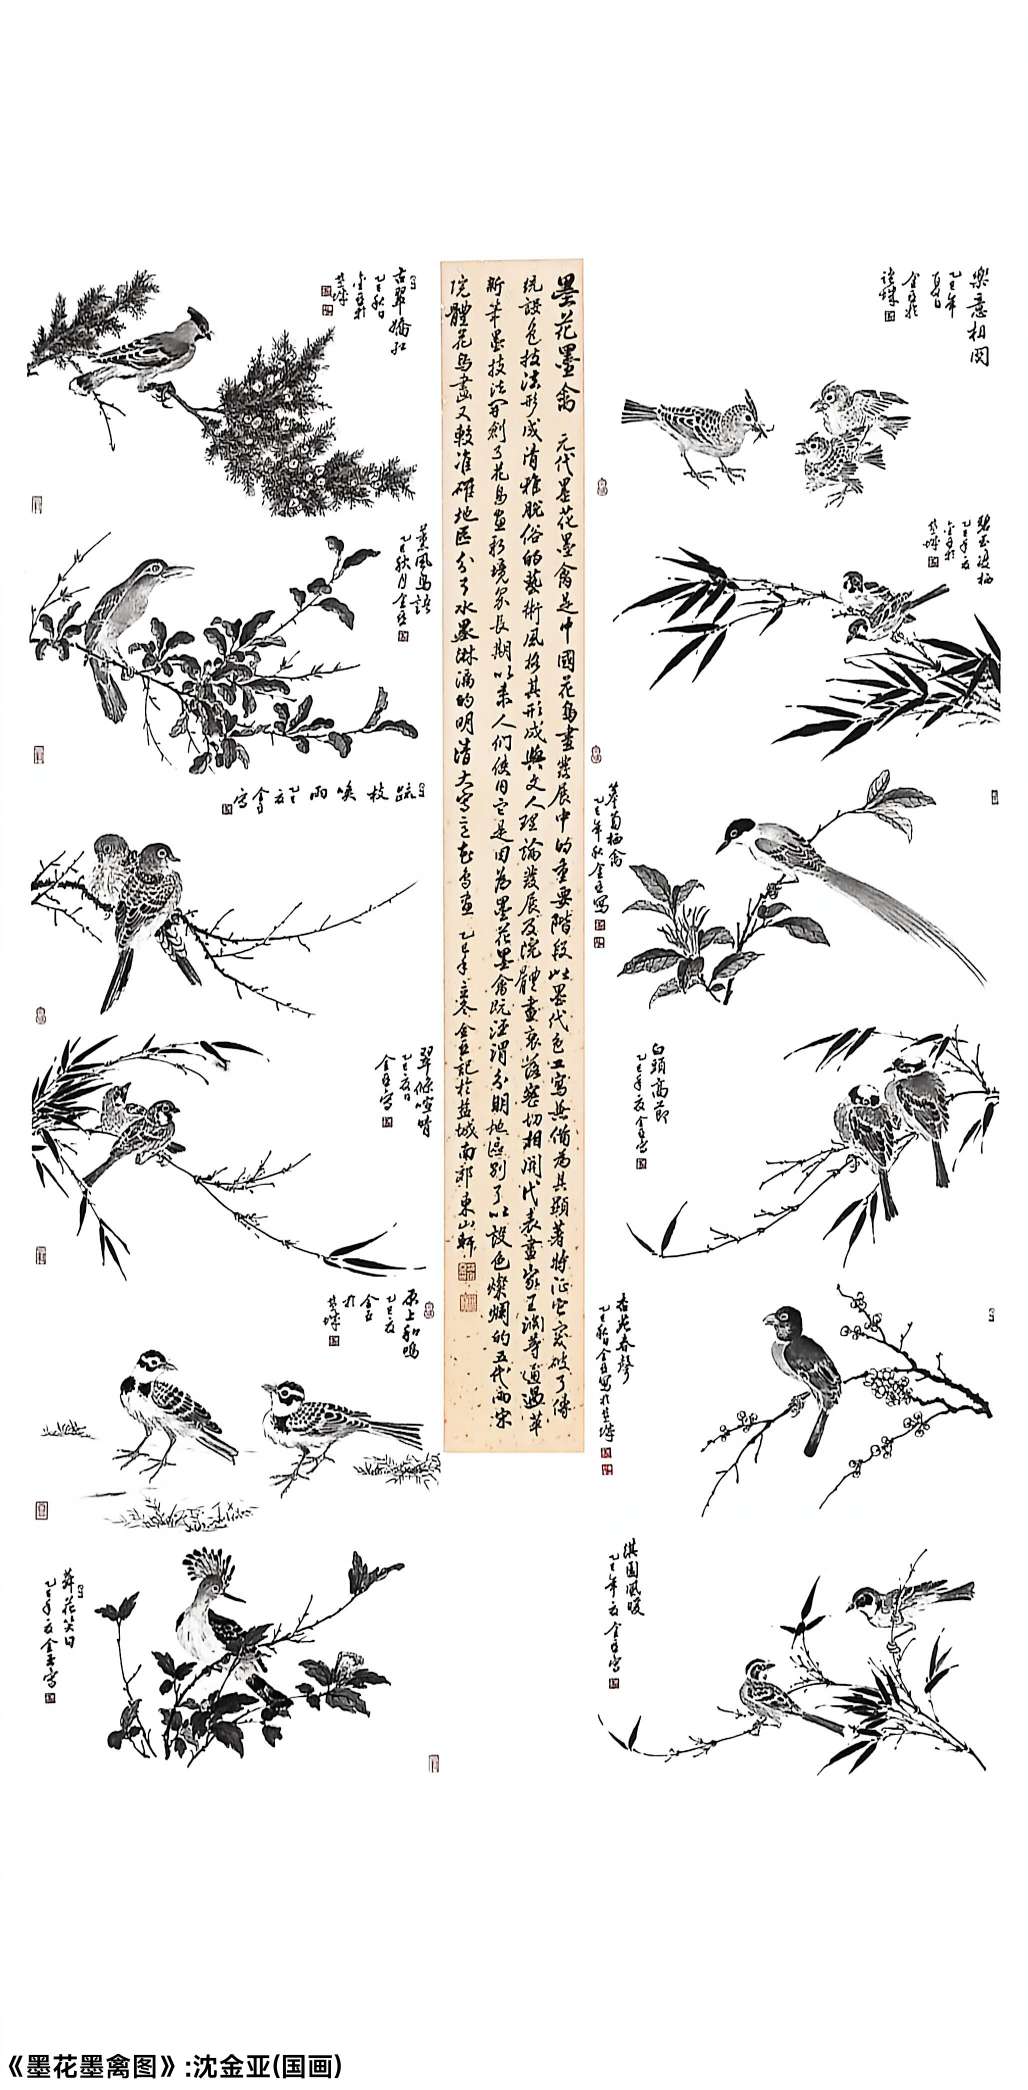 樂意相關
乙巳年
夏日
金亞於
鹽城
古翠嬌紅
乙巳秋日
金亞於
鹽城
墨花墨禽 元代墨花墨禽是中國花鳥畫發展中的重要階段以墨代色工寫兼備為其顯著特征它突破了傳
統設色技法形成清雅脫俗的藝術風格其形成與文人理論發展及院體畫衰落密切相關代表畫家王淵等通過革
新筆墨技法開創了花鳥畫新境界長期以來人们使用它是因為墨花墨禽既涇渭分明地區別了以設色燦爛的五代兩宋
院體花鳥畫又較准確地區分了水墨淋漓的明清大寫意花鳥畫 乙巳年立冬金亞記於鹽城南郊東山軒
碧玉雙栖
乙巳年夏
金亞於
鹽城
薰風鳥語
乙巳秋月金亞
疏枝喚雨 乙巳夏金亞寫
乙巳年秋金亞寫
翠條喧晴
乙巳夏日
金亞寫
白頭高節
乙巳年夏金亞寫
原上和鳴
乙巳夏
金亞
於
鹽城
杏花春聲
乙巳秋日金亞寫於鹽城
舜花笑日
乙巳年夏金亞寫
淇園風暖
乙巳年夏金亞寫
《墨花墨禽图》:沈金亚(国画)